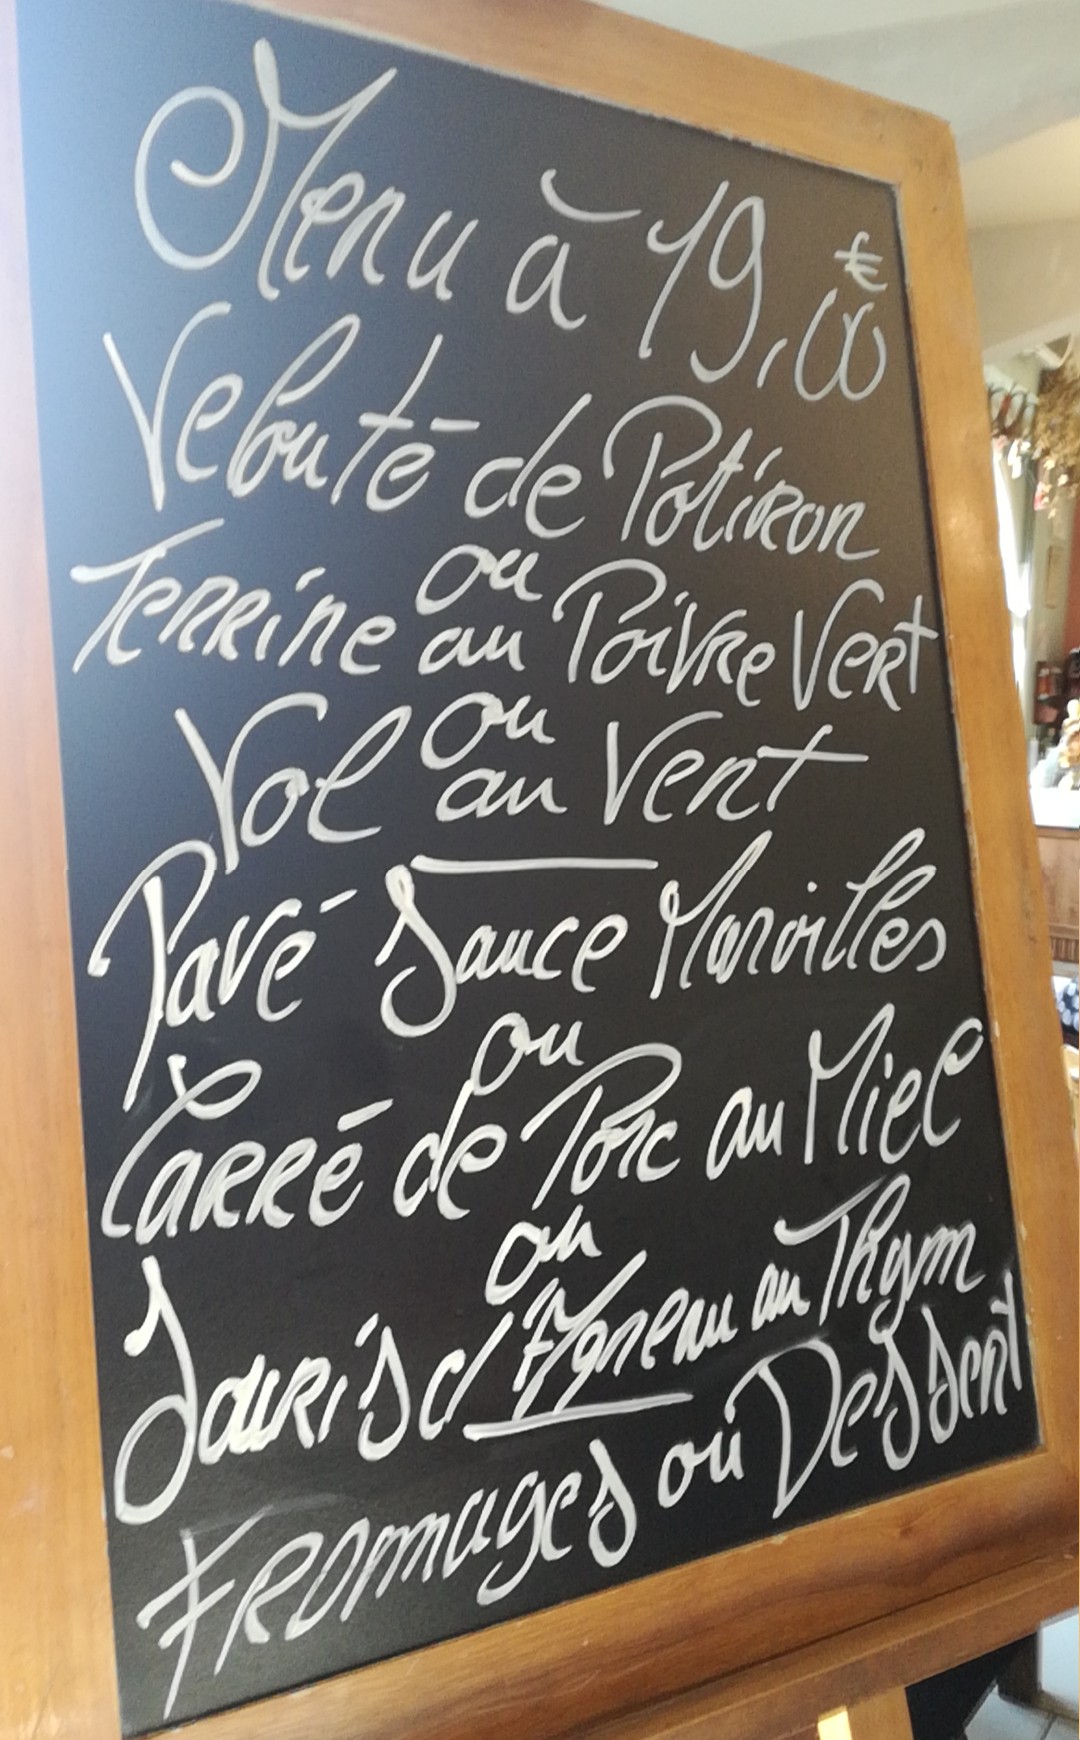 Menu à 19,00 €
Velouté de Potiron
ou
Terrine au Poivre Vert
ou
Vol au Vent
Pavé Sauce Maroilles
ou
Carré de Porc au Miel
ou
Souris d'Agneau au Thym
Fromages ou Dessert